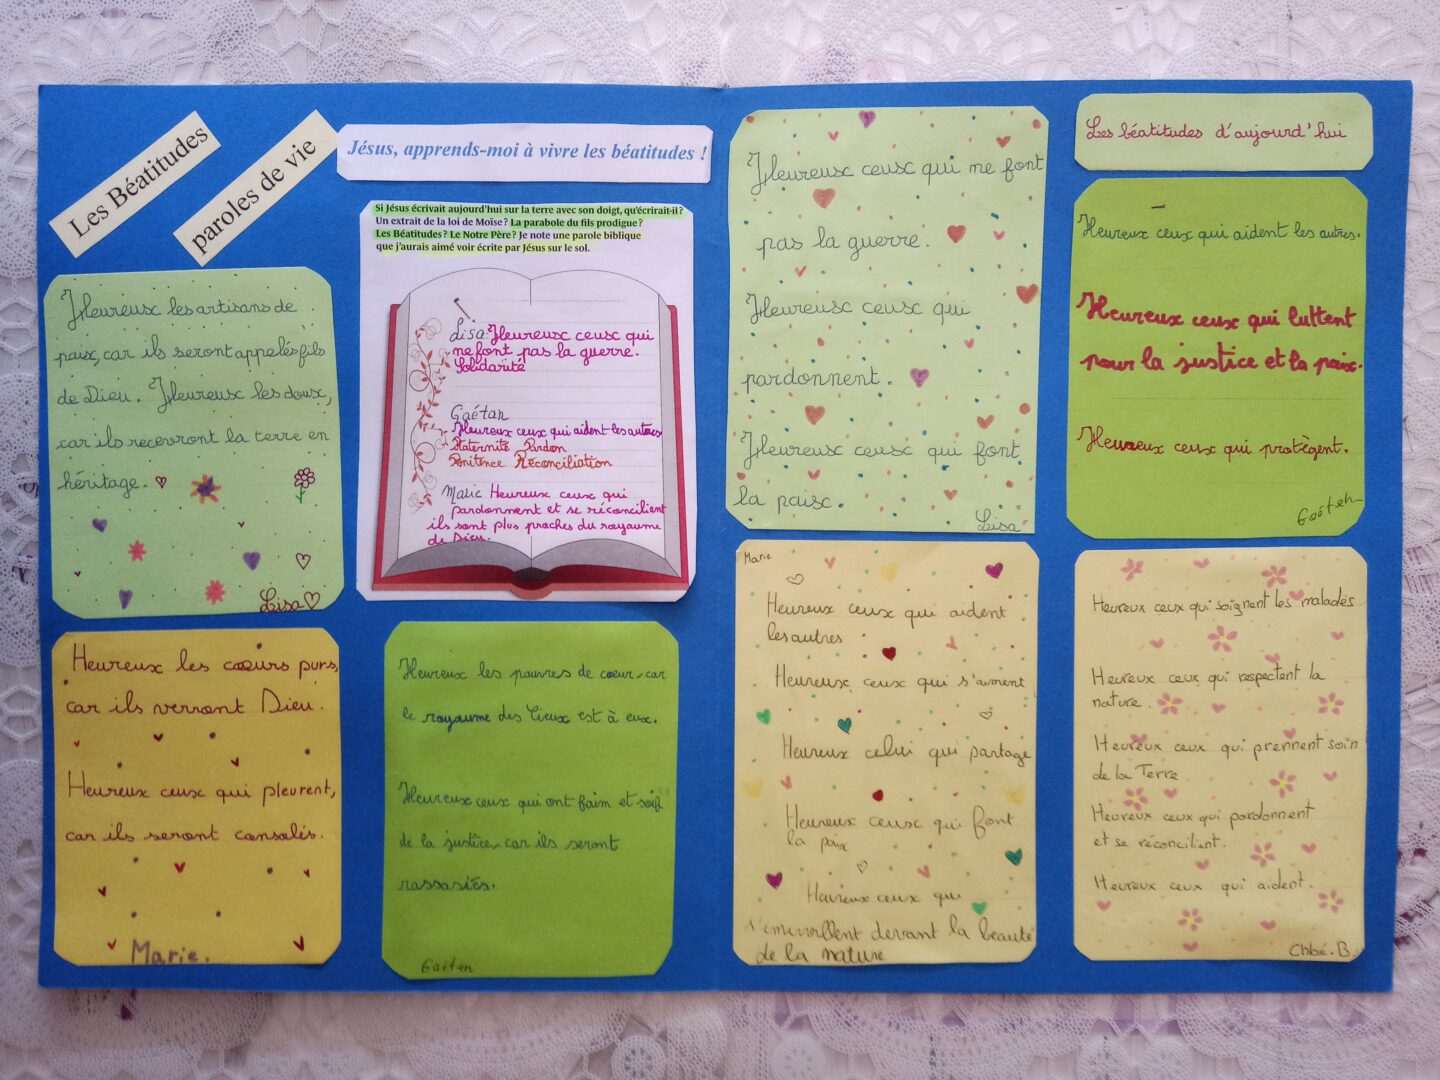 Les Béatitudes
paroles de vie
Jésus, apprends-moi à vivre les béatitudes !
Si Jésus écrivait aujourd'hui sur la terre avec son doigt, qu'écrirait-il ?
Un extrait de la loi de Moïse ? La parabole du fils prodigue ?
Les Béatitudes ? Le Notre Père ? Je note une parole biblique
que j'aurais aimé voir écrite par Jésus sur le sol.
Lisa: Heureux ceux qui
ne font pas la guerre.
Solidarité
Gaétan
Heureux ceux qui aident les autres
Fraternité Pardon
Pénitence Réconciliation
Marie Heureux ceux qui
pardonnent et se réconcilient
ils sont plus proches du royaume
de Dieu.
Heureux les artisans de
paix, car ils seront appelés fils
de Dieu. Heureux les doux,
car ils recevront la terre en
héritage.
Lisa
Heureux les cœurs purs,
car ils verront Dieu.
Heureux ceux qui pleurent,
car ils seront consolés.
Marie.
Heureux les pauvres de cœur, car
le royaume des Cieux est à eux.
Heureux ceux qui ont faim et soif
de la justice, car ils seront
rassasiés.
Gaéten
Heureux ceux qui ne font
pas la guerre.
Heureux ceux qui
pardonnent.
Heureux ceux qui font
la paix.
Lisa
Les béatitudes d'aujourd'hui
Heureux ceux qui aident les autres.
Heureux ceux qui luttent
pour la justice et la paix.
Heureux ceux qui protègent.
Gaéten
Marie
Heureux ceux qui aident
les autres
Heureux ceux qui s'aiment
Heureux celui qui partage
Heureux ceux qui font
la paix
Heureux ceux qui
s'émerveillent devant la beauté
de la nature
Heureux ceux qui soignent les malades.
Heureux ceux qui respectent la
nature.
Heureux ceux qui prennent soin
de la Terre.
Heureux ceux qui pardonnent
et se réconcilient.
Heureux ceux qui aident.
Chloé.B